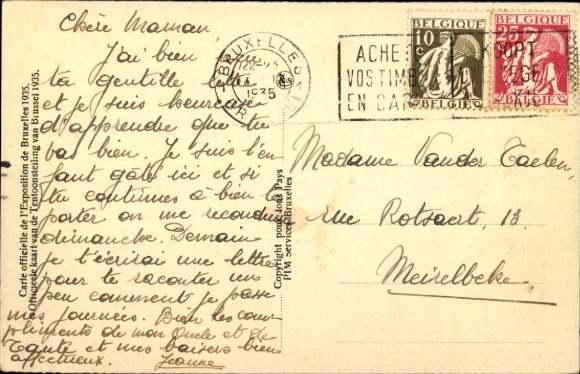 Chère Maman,
J'ai bien reçu
ta gentille
et je suis heureuse
d'apprendre que tu
vas bien. Je suis l'en
fant gâté ici et si
tu continues à bien te
porter on me reconduira
dimanche. Demain
je t'écrirai une lettre
pour te raconter un
peu comment je passe
mes journées. Bien les com
pliments de mon Oncle et de
Tante et mes baisers bien
affectueux. Jeanne
Carte officielle de l'Exposition de Bruxelles 1935.
Officieele kaart van de Tentoonstelling van Brussel 1935.
Copyright pour tous Pays
PIM Services Bruxelles
BRUXELLES
1935
BELGIQUE
10c
BELGIE
BELGIQUE
25c
BELGIE
ACHE
VOS TIMB
EN CAR
KOOPT
Madame Vander Taelen,
rue Rotsaert, 13,
Meirelbeke